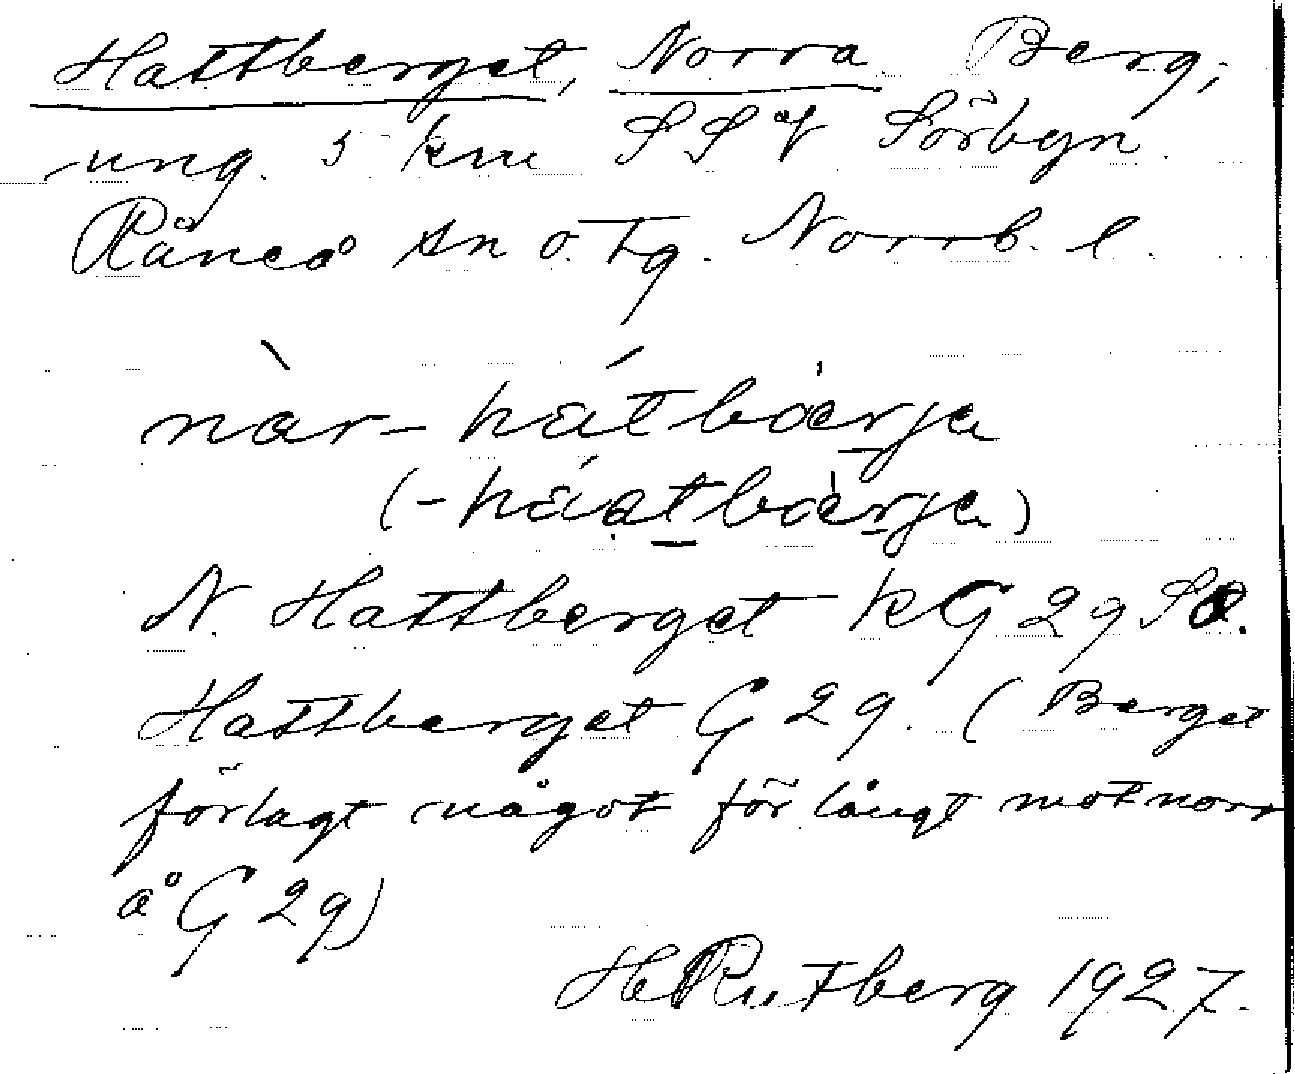 Hattberget, Norra Berg,
ung. 5 km SSV Sörbyn
Råneå sn o. tg. Norrb. l.
når- hátbàrja
(-háatbàrja)
N. Hattberget kG 29 So.
Hattberget G 29. (Berget
förlagt något för långt mot norr
å G 29)
H Rutberg 1927.